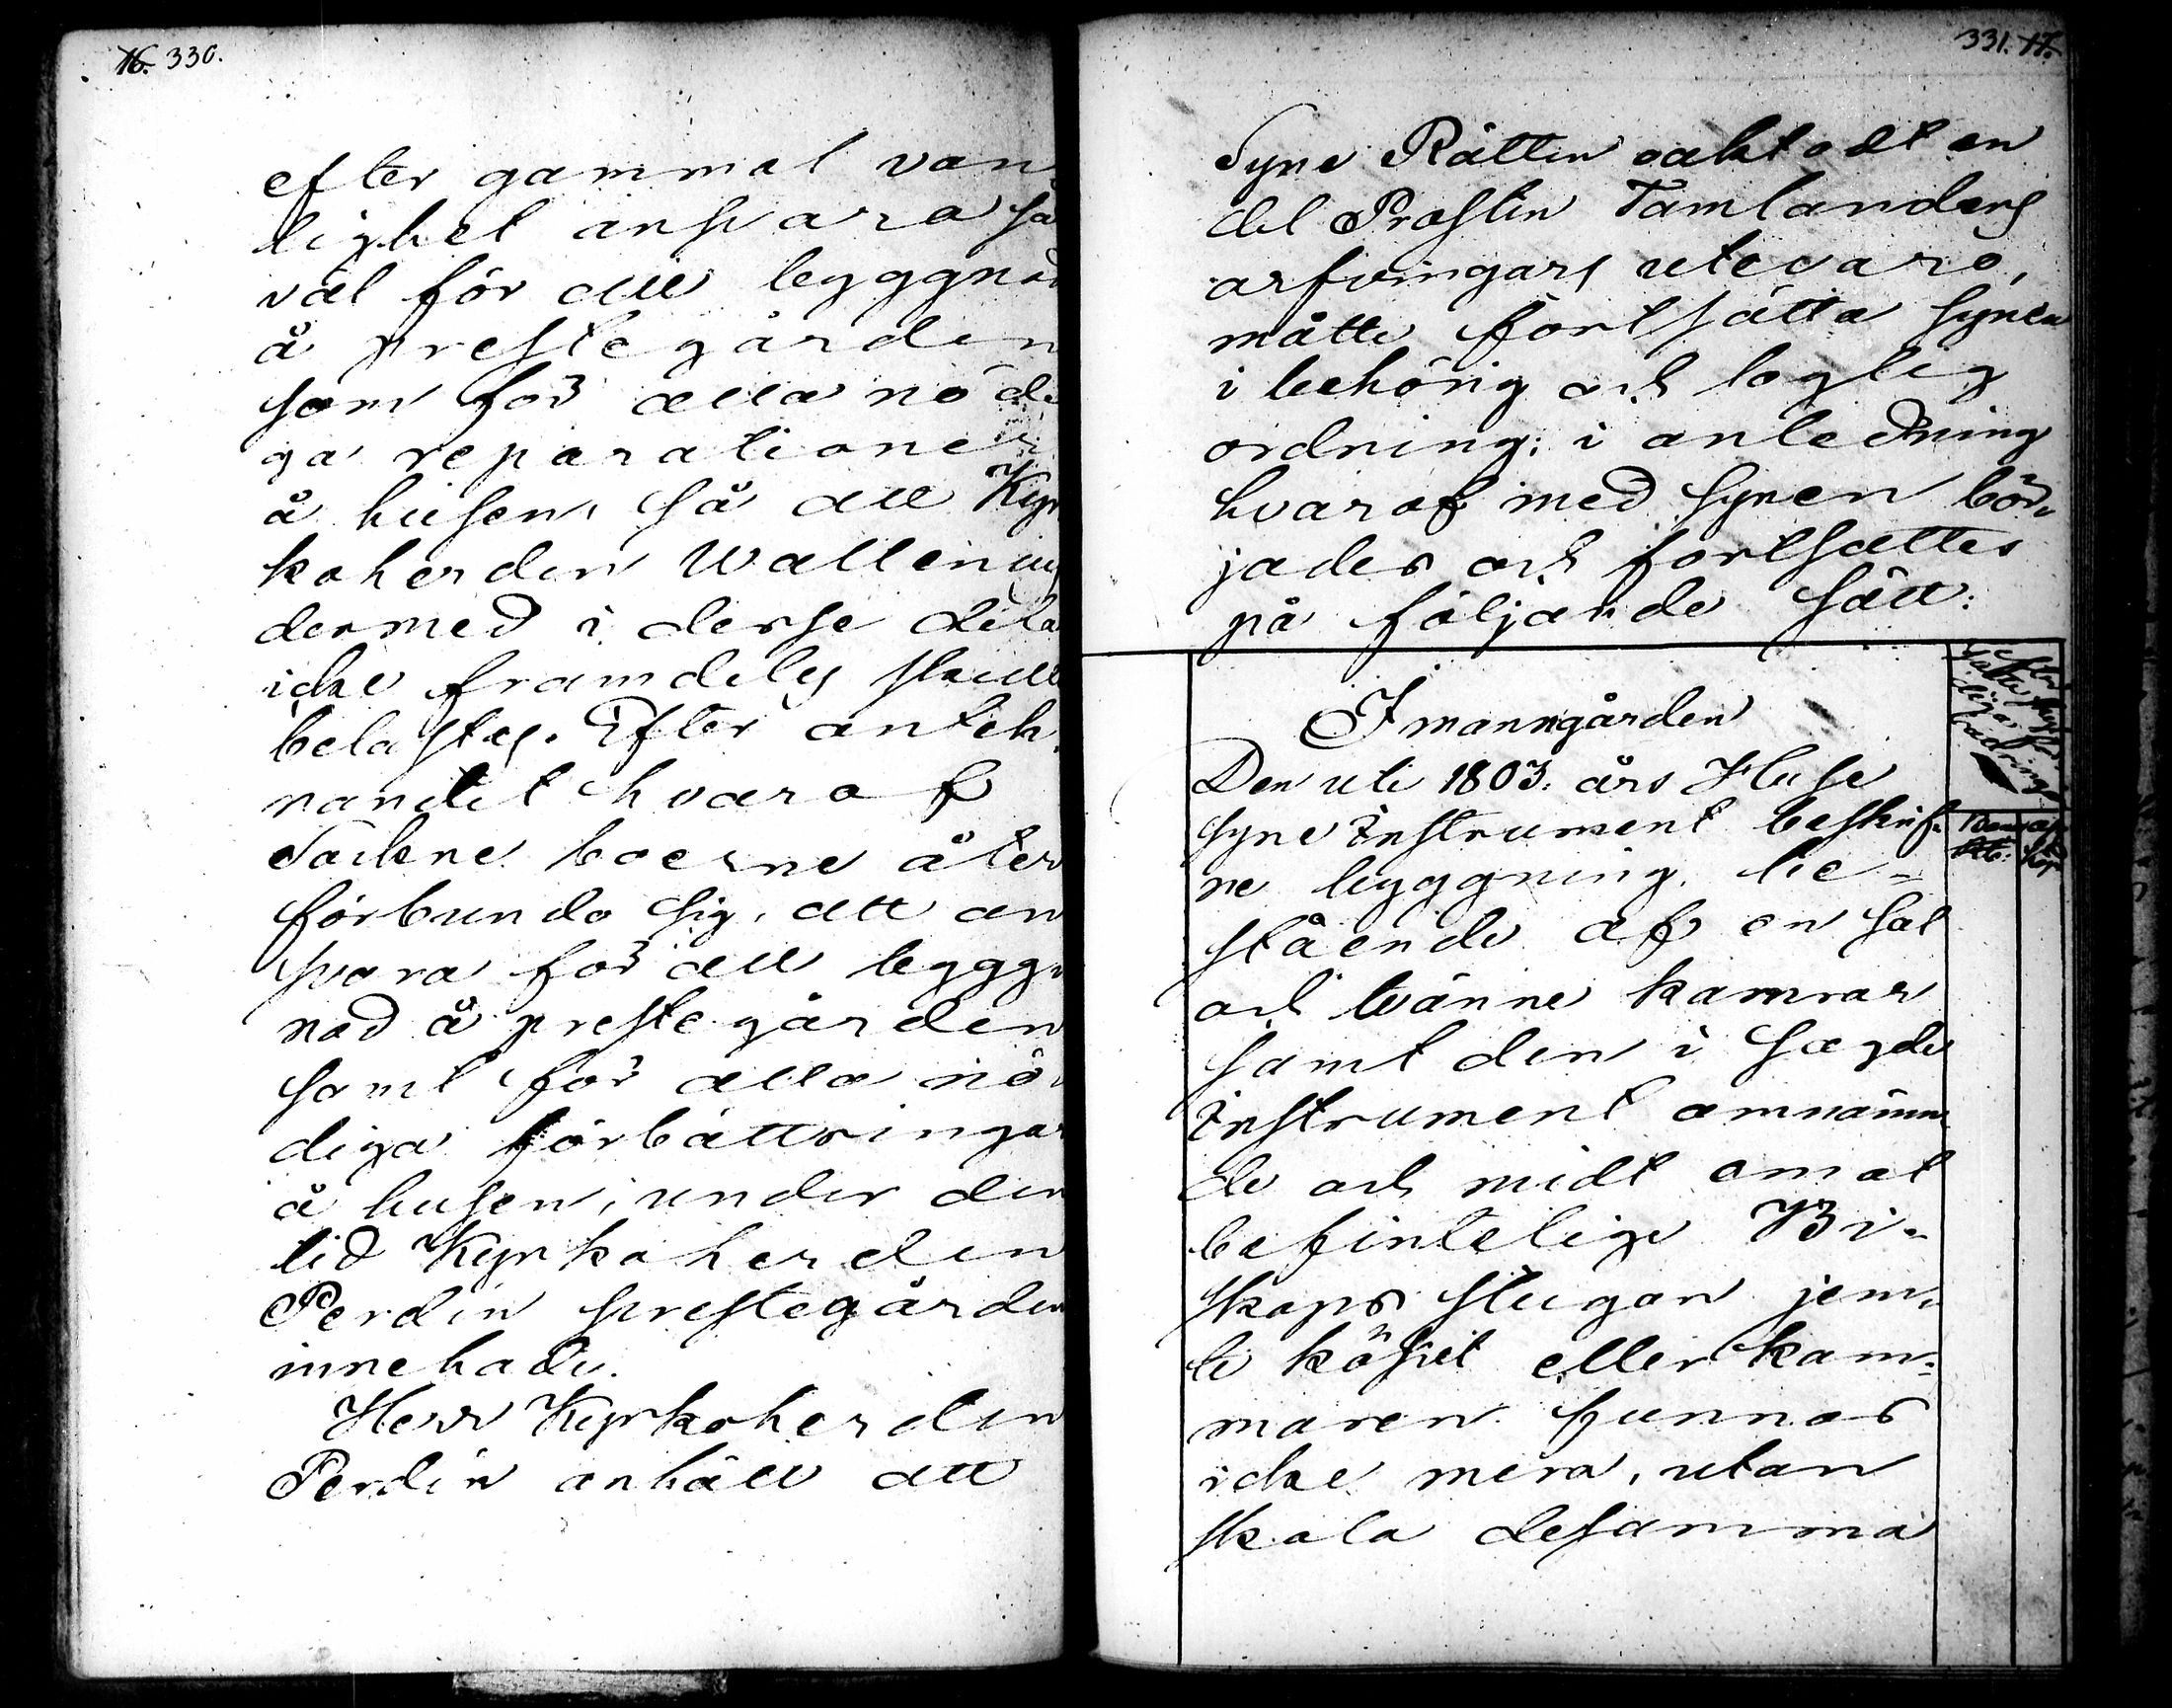 16. 330.
efter gammal van„
lighet ansvara så
väl för all byggnad
å prestegården
som för alla nödi
ga reparationer
å husen, så att Kyr
koherden Wallenius
dermed i desse delar
icke framdeles skulle
belastas. Efter anteck„
nandet hvaraf
Socknе boerne åter
förbundo sig, att an
svara för all bygg„
nad å prestegården
samt för alla nö„
diga förbättringar
å husen, under den
tid Kyrkoherden
Perdin prestegården
innehade.
Herr Kyrkoherden
Perdin anhöll att
331. 17.
Syne Rätten oaktadt en
del Prosten Tamlanders
arfvingars utevaro,
måtte fortsätta synen
i behörig och laglig
ordning; i anledning
hvaraf med synen bör„
jades och fortsattes
på följande sätt:
I manngården
Den uti 1803. års Huse
syne Instrument beskrif„
ne byggning, be„
stående af en sal
och tvänne kamrar
samt den i sagde
Instrument omnämn
de och midt emot
befintelige Bi„
skaps stugan jem„
te köket eller kam„
maren funnos
icke mera, utan
skola desamma